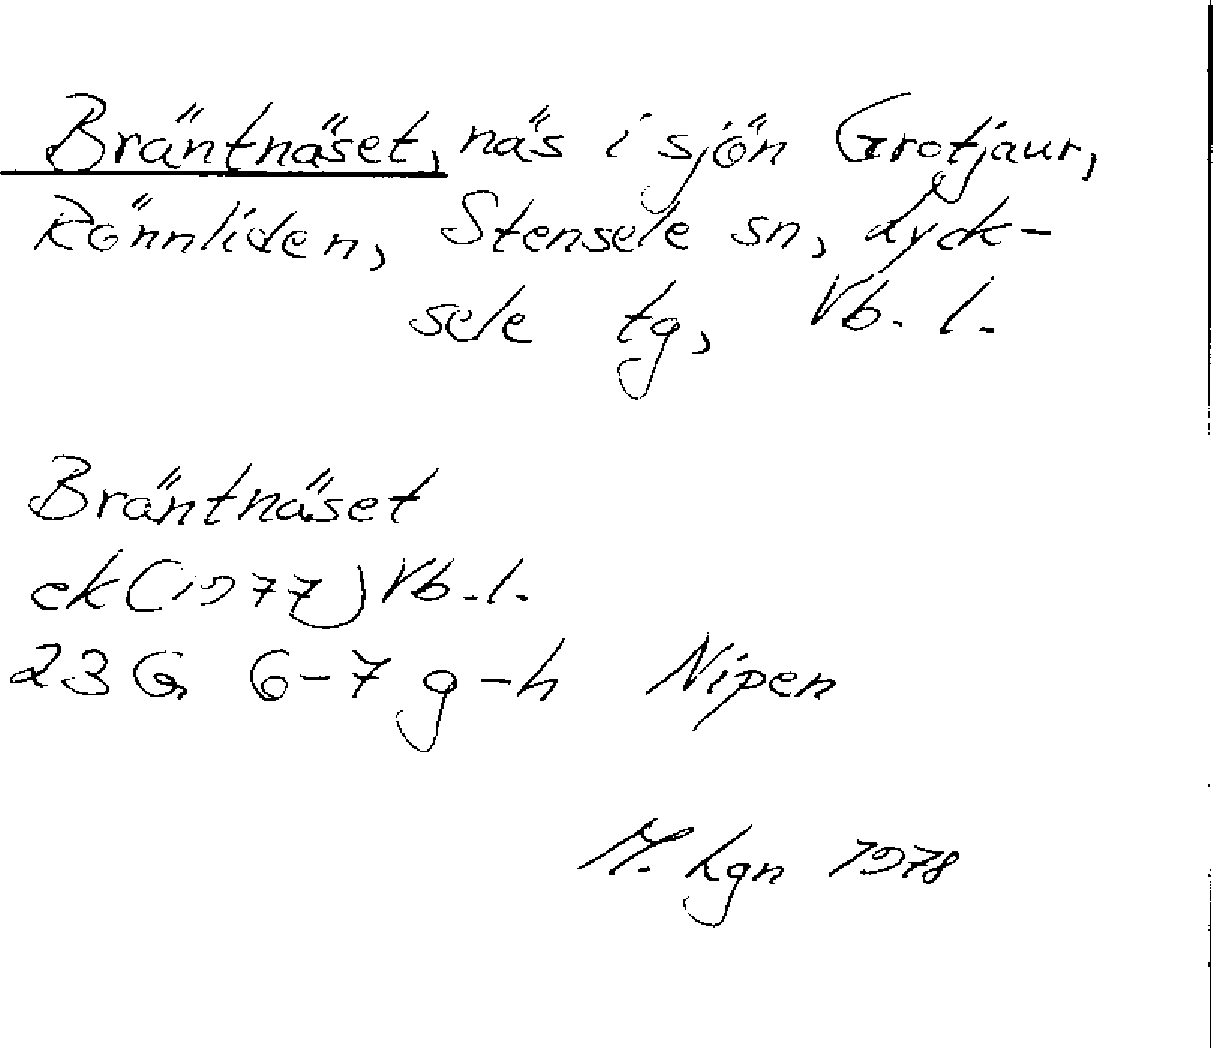 Bräntnäset, näs i sjön Grotjaur,
Rönnliden, Stensele sn, Lyck-
sele tg, Vb. l.
Bräntnäset
ek (1977) Vb. l.
23 G 6-7 g-h Nipen
M. Lgn 1978